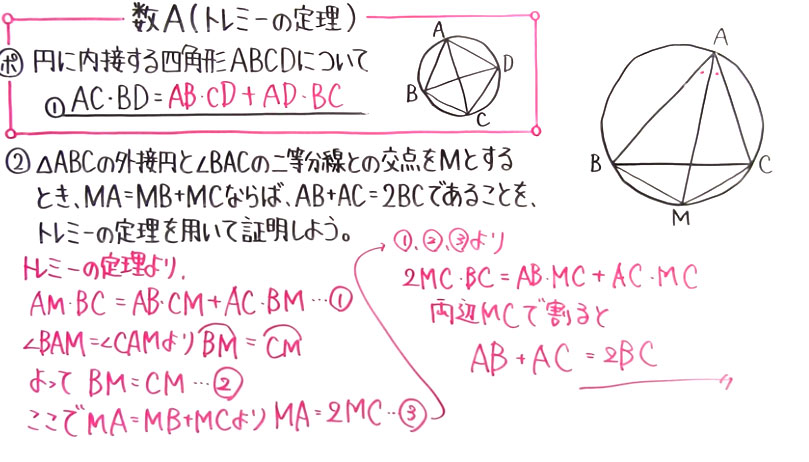 数A(トレミーの定理)
ポ 円に内接する四角形ABCDについて
① AC・BD=AB・CD+AD・BC
A
B
C
D
② △ABCの外接円と∠BACの二等分線との交点をMとする
とき、MA=MB+MCならば、AB+AC=2BCであることを、
トレミーの定理を用いて証明しよう。
A
B
C
M
トレミーの定理より、
AM・BC=AB・CM+AC・BM…①
∠BAM=∠CAMより BM=CM
よって BM=CM…②
ここでMA=MB+MCより MA=2MC…③
①、②、③より
2MC・BC=AB・MC+AC・MC
両辺MCで割ると
AB+AC=2BC